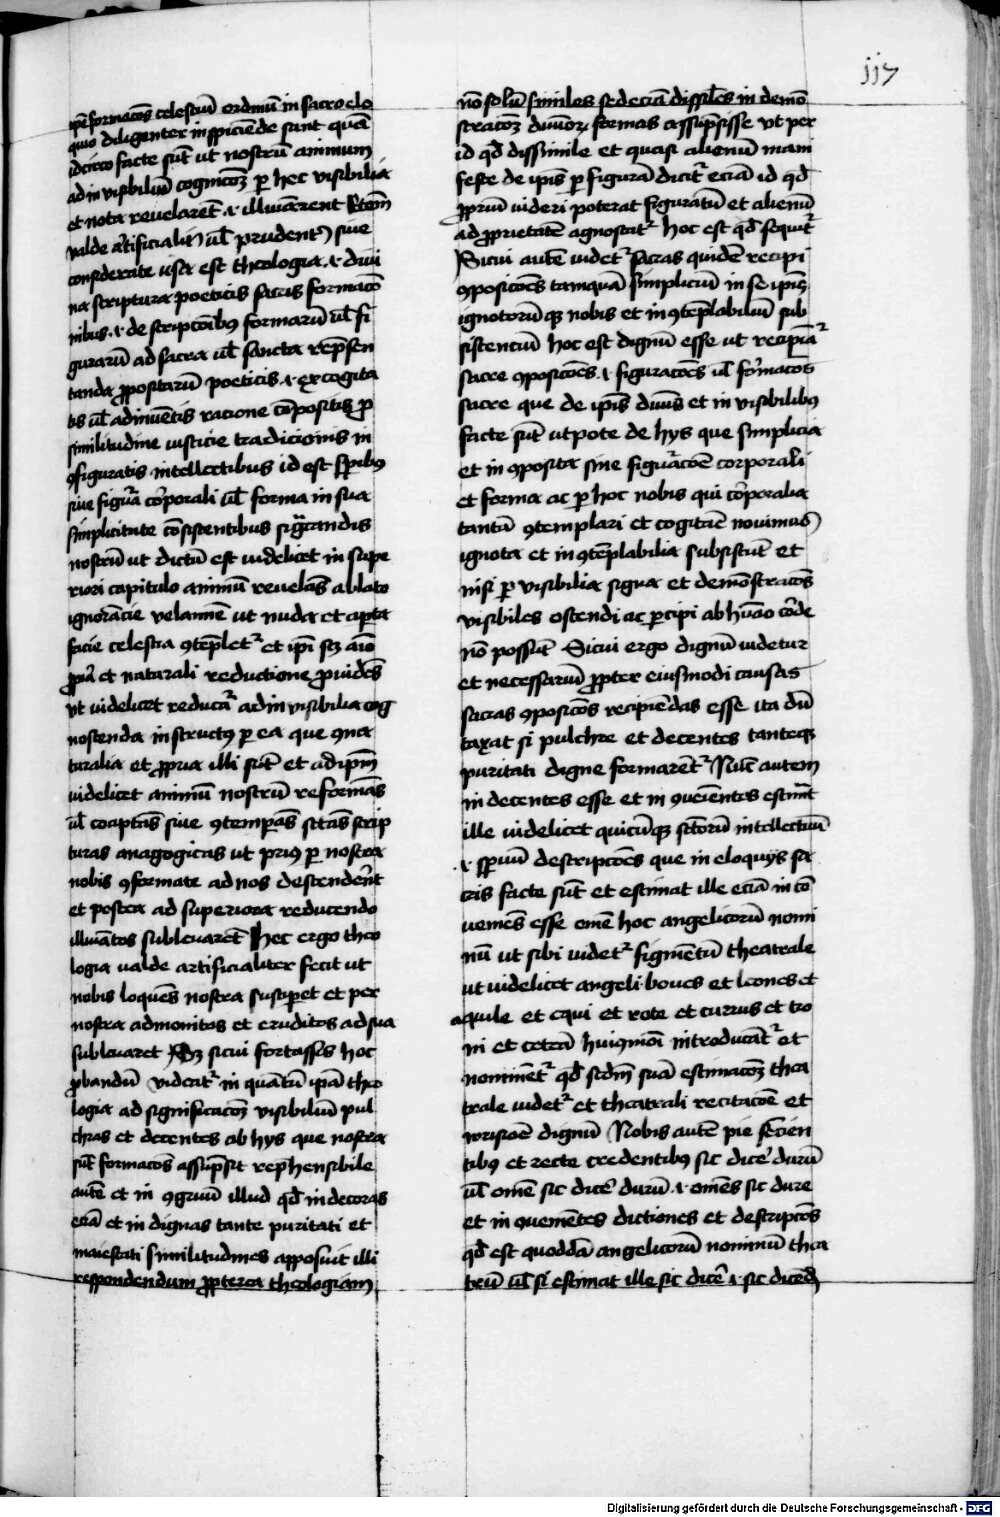 117
ipse formacões celestiũ ordinũ in sacro elo
quio diligenter inspiciẽde sunt quãm
idcirco facte sũt ut nostrum animum
ad invisibiliũ cognicõꝫ ꝑ hec visibilia
et nota revelarẽt .i. illuminarent Etem̃
valde artificialiꝰ ul̃ prudenꝰ sive
considerate usa est theologia .i. divi
na scriptura poeticis sacris formacõ
nibus .i. descripcõibꝰ formarũ ul̃ fi
gurarũ ad sacra ul̃ sancta repñsen
tanda ꝓpositarũ poeticis .i. excogita
tis ul̃ adinuẽtis racione cõpositis ꝓ
similitudine iusticie tradicionis in
ꝯfiguratis intellectibus id est spũibꝰ
sine figura corporali ul̃ forma in sua
simplicitate cõsistentibus significandis
nostrũ ut dictũ est videlicet in supe
riori capitulo animũ revelãs ablato
ignorãcie velamine ut nuda et apta
facie celestia ꝯtẽplet̉ et ipi sꝫ aĩo
ꝓpria et naturali reductione ꝓvidẽs
ut videlicet reducat̉ ad invisibilia cog
noscenda instructꝰ ꝑ ea que ꝯna
turalia et ꝓpria illi sũt et ad ipm̃
videlicet animũ nostrũ reformãs
ul̃ coaptãs sive ꝯtemperãs sctãs scrip
turas anagogicas ut priꝰ ꝑ nostra
nobis ꝯformate ad nos descenderẽt
et postea ad superiora reducendo
illuminatos sublevarẽt Hec ergo theo
logia valde artificialiter fecit ut
nobis loquẽs nostra susciperet et per
nostra admonitos et eruditos ad sua
sublevaret Sꝫ si cui fortassis hoc
ꝓbandũ videat̉ in quãtũ ipãm theo
logia ad significacõꝫ visibiliũ pul
chras et decentes ab hys que nostra
sũt formacões assũpsit repñhensibile
autẽ et in ꝯgruũ illud qđ indecoras
eciã et indignas tante puritati et
maiestati similitudines apposuit illi
respondendum ꝓpterea theologiam
nõ solũ similes sed eciã dissiles in demõ
stracõꝫ divinorꝫ formas assũpsisse ut per
id qđ dissimile et quasi alienũ mani
feste de ipis ꝑ figurã dicit̉ eciã id qđ
ꝓpriũ videri poterat figuratũ et alienũ
ad ꝓprietatẽ agnoscat̉ hoc est qđ sequit̉
Si cui autẽ videt̉ sacras quidẽ recipi
ꝯposicões tamquã simpliciũ in se ipis
ignotorũqꝫ nobis et in ꝯtẽplabiliũ sub
sistenciũ hoc est dignũ esse ut recipiãt̉
sacre ꝯposicões .i. figuracões ul̃ formacões
sacre que de ipis divinis et invisibilibꝰ
facte sũt utpote de hys que simplicia
et in ꝯposita sine figuracõe corporali
et forma ac ꝑ hoc nobis qui corporalia
tantũ ꝯtemplari et cogitare novimus
ignota et in ꝯtẽplabilia subsistũt et
nisi ꝑ visibilia signa et demõstracões
visibiles ostendi ac percipi ab huano corde
nõ possũt Si cui ergo dignũ videtur
et necessariũ ꝓpter eiusmodi causas
sacras ꝯposicões recipiẽdas esse ita dũ
taxat si pulchre et decentes tanteqꝫ
puritati digne formarẽt̉ Nũc autem
indecentes esse et in ꝯveniẽtes estimat
ille videlicet quicũqꝫ sctorũ intellectuũ
.i. spũuũ descripcões que in eloquijs sa
cris facte sũt et estimat ille eciã in cõ
veniẽs esse omẽ hoc angelicorũ nomi
nũ ut sibi videt̉ figmẽtũ theatrale
ut videlicet angeli boves et leones et
aquile et equi et rote et currus et tro
ni et cetera huiꝯmõi introducãt̉ et
nominẽt̉ qđ scđm suã estimacõꝫ thea
trale videt̉ et theatrali recitacõe et
irrisiõe dignũ Nobis autẽ pie sencien
tibꝰ et recte credentibꝰ sic dicere durũ
ul̃ omẽ sic dicere durũ .i. omẽs sic dure
et in ꝯveniẽtes dictiones et descripcões
qđ est quoddã angelicorũ nominũ thea
trũ ul̃ si estimat ille sic dicere .i. sic dicend
Digitalisierung gefördert durch die Deutsche Forschungsgemeinschaft - DFG